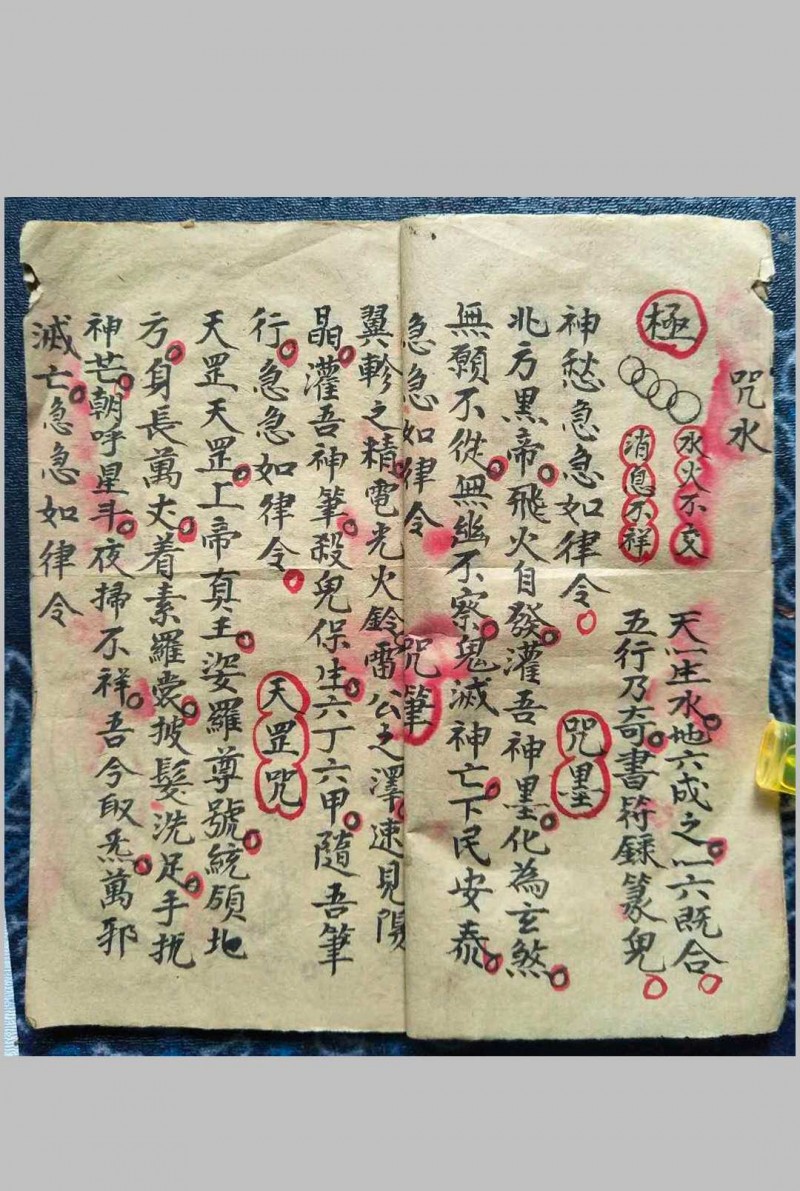 咒水
極
水火不交
消息不祥
天一生水地六成之一六既合
五行乃奇書符錄篆鬼
神愁急急如律令
咒墨
北方黑帝飛火自發灌吾神墨化為玄煞
無願不從無幽不察鬼滅神亡下民安泰
急急如律令
咒筆
翼軫之精電光火鈴雷公之澤速見陽
晶灌吾神筆殺鬼保生六丁六甲隨吾筆
行急急如律令
天罡咒
天罡天罡上帝真王姿羅尊號統領地
方身長萬丈着素羅裳披髮洗足手扰
神芒朝呼星斗夜掃不祥吾今取炁萬邪
滅亡急急如律令